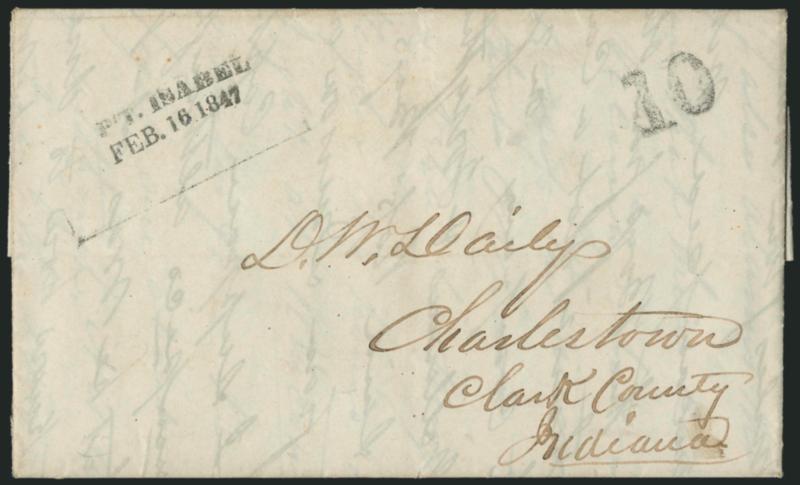 PT. ISABEL
FEB. 16 1847
10
D. W. Daily
Charlestown
Clark County
Indiana